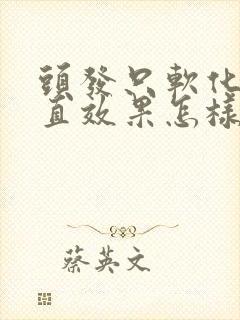 頭發只軟化
直效果怎樣
蔡英文